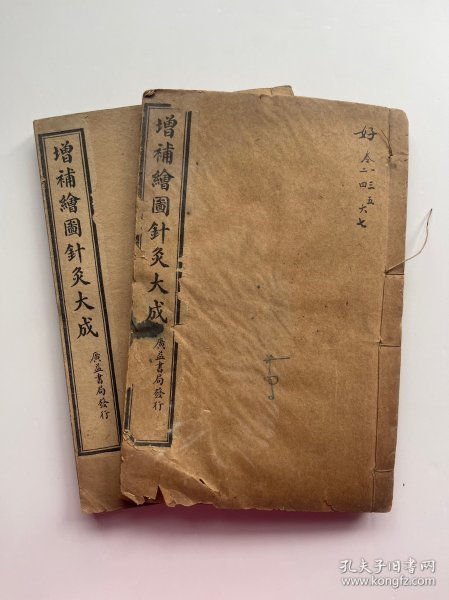 增補繪圖針灸大成
廣益書局發行
增補繪圖針灸大成
廣益書局發行
好
一三五
二四六七
孔夫子旧书网
www.kongfz.com